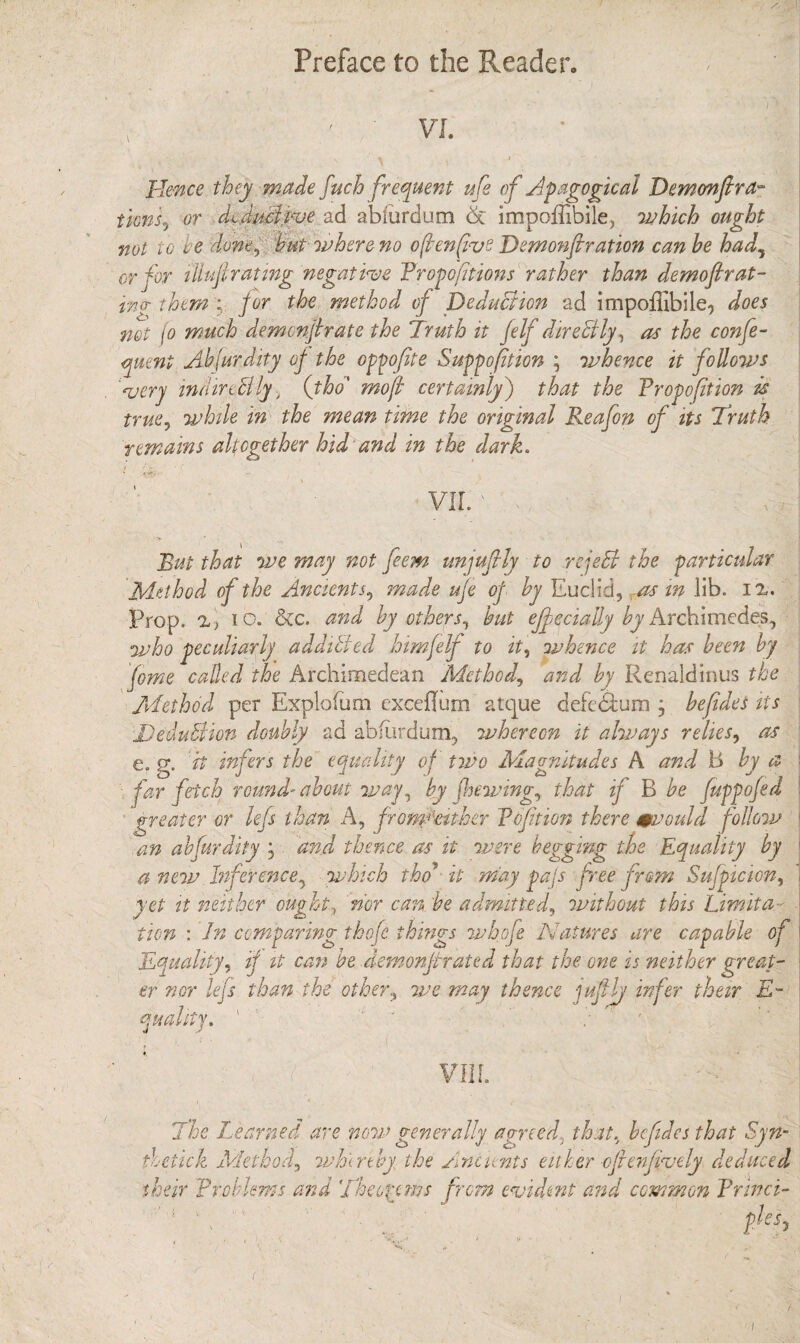 Preface to the Reader.
VI.
Hence they made ſuch frequent uſe of Apagogical Demonſtra-
tions, or deductive ad abſurdum & impoſſibile, which ought
not to be done, but where no oſtenſive Demonſtration can be had,
or for illuſtrating negative Propoſitions rather than demoſtrat-
ing them; for the method of Deduction ad impoſſibile, does
not ſo much demonſtrate the Truth it ſelf directly, as the conſe-
quent Abſurdity of the oppoſite Suppoſition; whence it follows
very indirectly, (tho' moſt certainly) that the Propoſition is
true, while in the mean time the original Reaſon of its Truth
remains altogether hid and in the dark.
VII.
But that we may not ſeem unjuſtly to reject the particular
Method of the Ancients, made uſe of by Euclid, as in lib. 12.
Prop. 2, 10. &c. and by others, but eſpecially by Archimedes,
who peculiarly addicted himſelf to it, whence it has been by
ſome called the Archimedean Method, and by Renaldinus the
Method per Exploſum exceſſum atque defectum; beſides its
Deduction doubly ad abſurdum, whereon it always relies, as
e. g. it infers the equality of two Magnitudes A and B by a
far fetch round-about way, by ſhewing, that if B be ſuppoſed
greater or leſs than A, from either Poſition there would follow
an abſurdity; and thence as it were begging the Equality by
a new Inference, which tho' it may paſs free from Suſpicion,
yet it neither ought, nor can be admitted, without this Limita-
tion: In comparing thoſe things whoſe Natures are capable of
Equality, if it can be demonſtrated that the one is neither great-
er nor leſs than the other, we may thence juſtly infer their E-
quality.
VIII.
The Learned are now generally agreed, that, beſides that Syn-
thetick Method, whereby the Ancients either oſtenſively deduced
their Problems and Theorems from evident and common Princi-
ples,